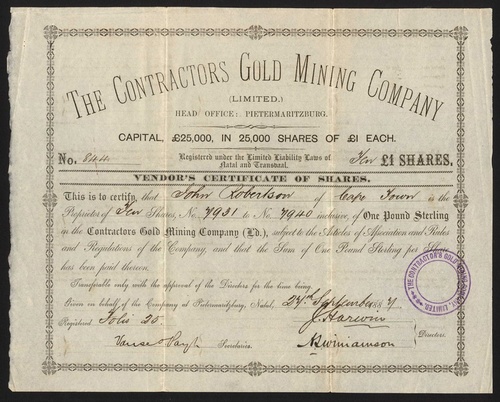 THE CONTRACTORS GOLD MINING COMPANY
(LIMITED.)
HEAD OFFICE: PIETERMARITZBURG.
CAPITAL, £25,000, IN 25,000 SHARES OF £1 EACH.
No. 844 Registered under the Limited Liability Laws of Natal and Transvaal. Ten £1 SHARES,
VENDOR'S CERTIFICATE OF SHARES.
This is to certify, that John Robertson of Cape Town is the
Proprietor of Ten Shares, No. 7931 to No. 7940 inclusive, of One Pound Sterling
in the Contractors Gold Mining Company (Ld.), subject to the Articles of Association and Rules
and Regulations of the Company, and that the Sum of One Pound Sterling per Share
has been paid thereon.
Transferable only with the approval of the Directors for the time being.
Given on behalf of the Company at Pietermaritzburg, Natal, 24th September 1887
Registered Folio 20.
Secretaries.
Directors.
THE CONTRACTOR'S GOLD MINING COMPANY, LIMITED